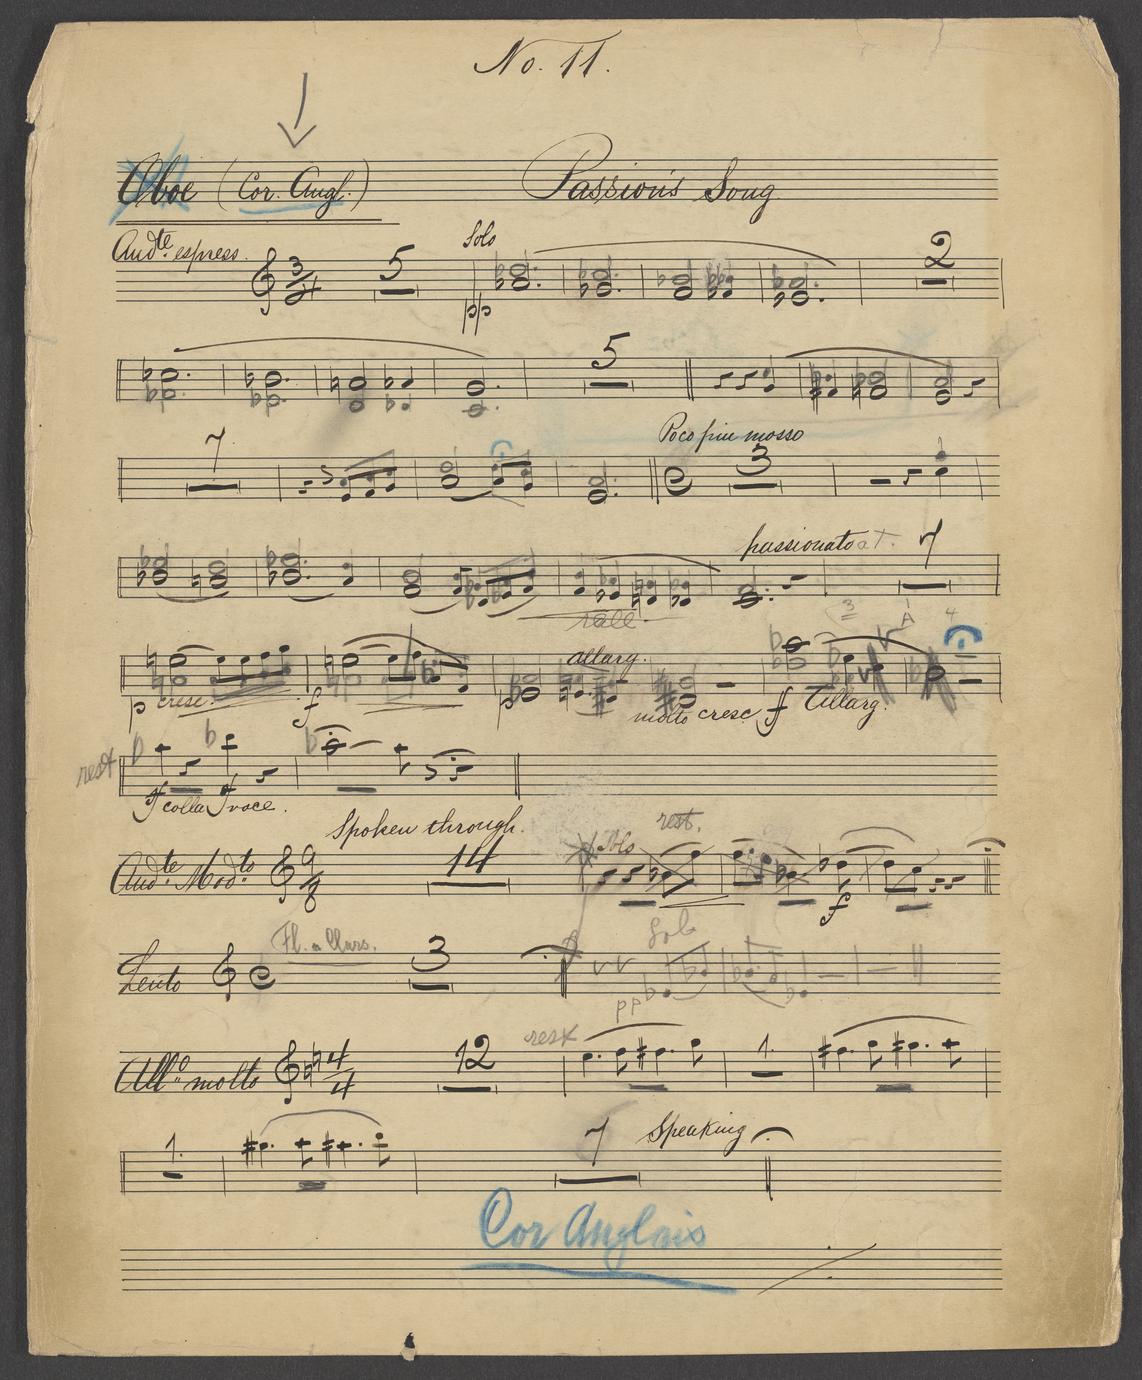 No. 11.
Oboe (Cor. Angl.) Passion's Song
Andte. espress. 3/4 5 Solo pp 2
5
7 Poco piu mosso 3
rall. passionato 7
p cresc. f p allarg. molto cresc f allarg. 3 4
rest f colla f voce.
Spoken through.
Andte. Modto. 9/8 14 Solo rest. f
Lento 3 Solo pp
Allo. molto 4/4 12 rest 1.
1. 7 Speaking
Cor Anglais